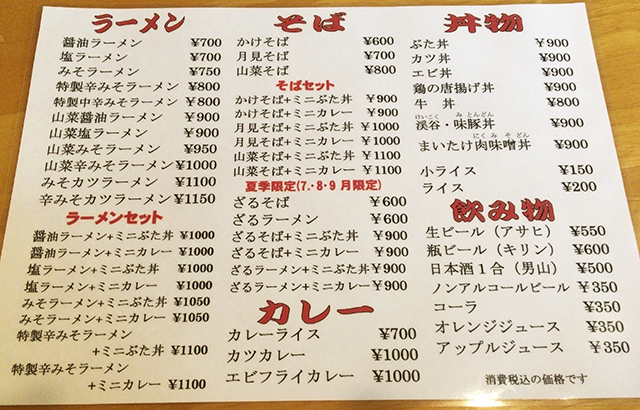 ラーメン
醤油ラーメン ¥700
塩ラーメン ¥700
みそラーメン ¥750
特製辛みそラーメン ¥800
特製中辛みそラーメン ¥800
山菜醤油ラーメン ¥900
山菜塩ラーメン ¥900
山菜みそラーメン ¥950
山菜辛みそラーメン ¥1000
みそカツラーメン ¥1100
辛みそカツラーメン ¥1150
ラーメンセット
醤油ラーメン+ミニぶた丼 ¥1000
醤油ラーメン+ミニカレー ¥1000
塩ラーメン+ミニぶた丼 ¥1000
塩ラーメン+ミニカレー ¥1000
みそラーメン+ミニぶた丼 ¥1050
みそラーメン+ミニカレー ¥1050
特製辛みそラーメン
+ミニぶた丼 ¥1100
特製辛みそラーメン
+ミニカレー ¥1100
そば
かけそば ¥600
月見そば ¥700
山菜そば ¥800
そばセット
かけそば+ミニぶた丼 ¥900
かけそば+ミニカレー ¥900
月見そば+ミニぶた丼 ¥1000
月見そば+ミニカレー ¥1000
山菜そば+ミニぶた丼 ¥1100
山菜そば+ミニカレー ¥1100
夏季限定(7・8・9月限定)
ざるそば ¥600
ざるラーメン ¥600
ざるそば+ミニぶた丼 ¥900
ざるそば+ミニカレー ¥900
ざるラーメン+ミニぶた丼 ¥900
ざるラーメン+ミニカレー ¥900
カレー
カレーライス ¥700
カツカレー ¥1000
エビフライカレー ¥1000
丼物
ぶた丼 ¥900
カツ丼 ¥900
エビ丼 ¥900
鶏の唐揚げ丼 ¥900
牛丼 ¥800
けいこく みとんどん
渓谷・味豚丼 ¥900
にくみそどん
まいたけ肉味噌丼 ¥900
小ライス ¥150
ライス ¥200
飲み物
生ビール（アサヒ） ¥550
瓶ビール（キリン） ¥600
日本酒１合（男山） ¥500
ノンアルコールビール ¥350
コーラ ¥350
オレンジジュース ¥350
アップルジュース ¥350
消費税込の価格です